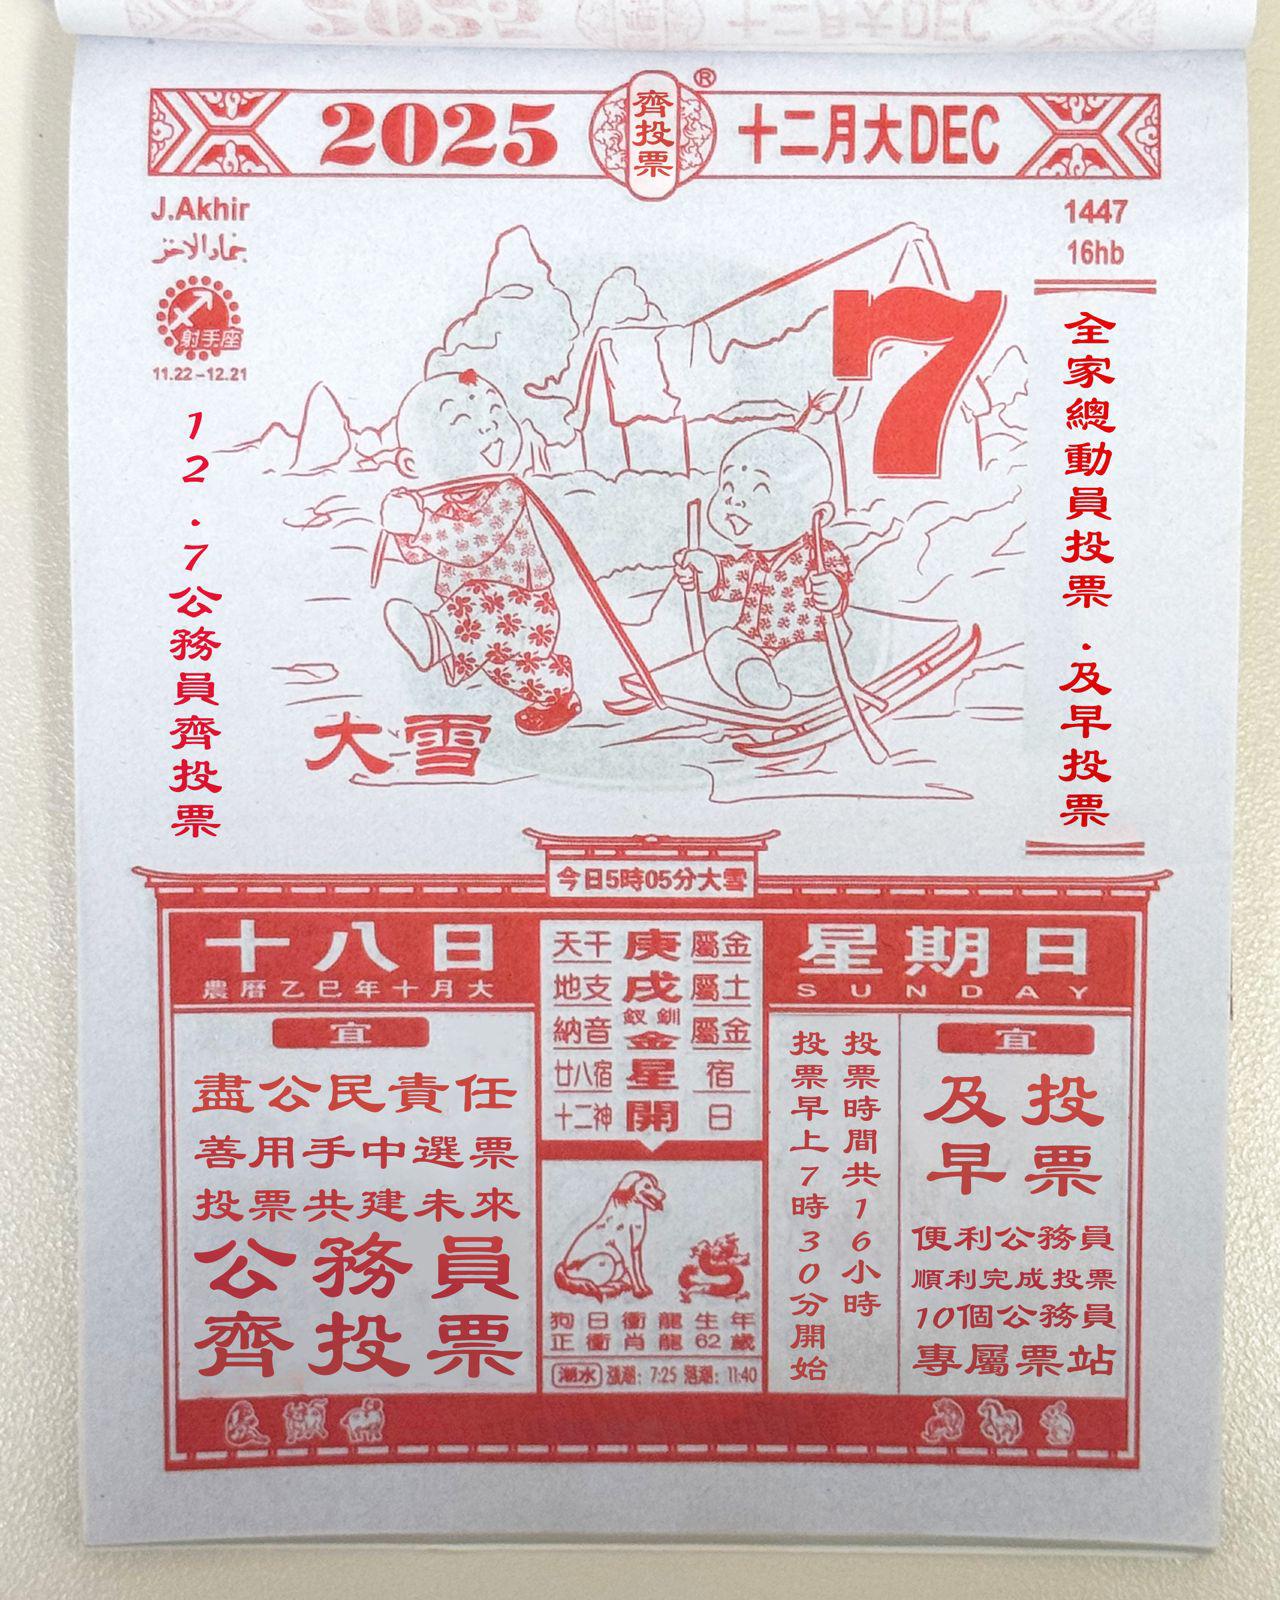 2025
齊投票
®
十二月大DEC
J.Akhir
射手座
11.22-12.21
1447
16hb
7
12.7公務員齊投票
全家總動員投票.及早投票
大雪
今日5時05分大雪
十八日
農曆乙巳年十月大
天干 庚 屬金
地支 戌 屬土
納音 釵釧金 屬金
廿八宿 星 宿
十二神 開 日
星期日
SUNDAY
宜
盡公民責任
善用手中選票
投票共建未來
公務員
齊投票
狗日衝龍生年
正衝肖龍62歲
潮水 漲潮：7:25 落潮：11:40
投票時間共16小時
投票早上7時30分開始
宜
投票
及早
便利公務員
順利完成投票
10個公務員
專屬票站